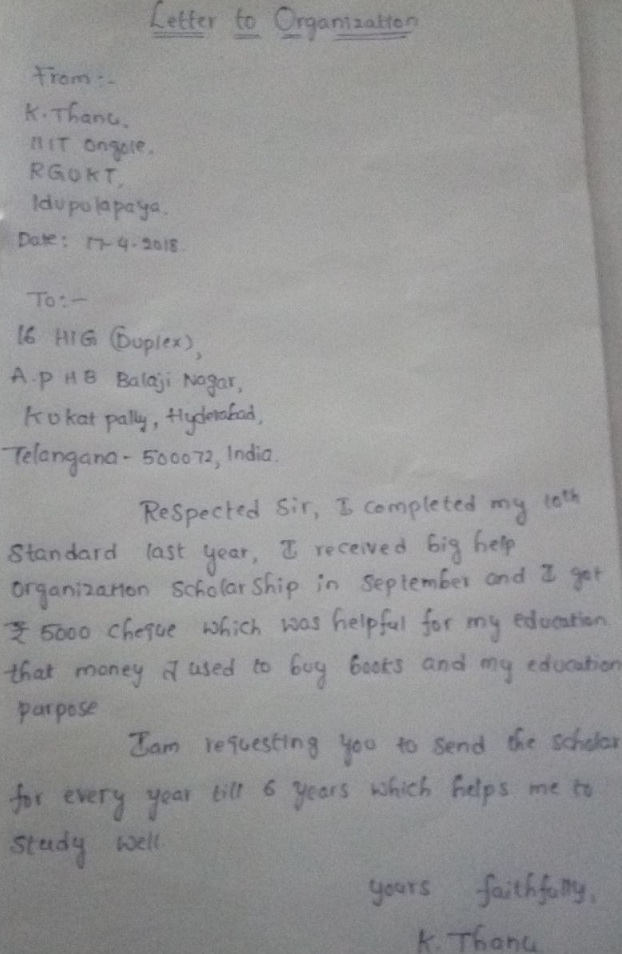 Letter to Organization
From :-
K. Thanu,
IIIT Ongole,
RGUKT,
Idupulapaya.
Date: 17-4-2018
To :-
16 HIG (Duplex),
A.P H B Balaji Nagar,
Kukat pally, Hyderabad,
Telangana - 500072, India.
Respected Sir, I completed my 10th
Standard last year, I received big help
Organization Scholar Ship in September and I got
₹ 5000 cheque which was helpful for my education
that money I used to buy books and my education
parpose
I am requesting you to send the scholar
for every year till 6 years which helps me to
study well.
yours faithfully,
K. Thanu